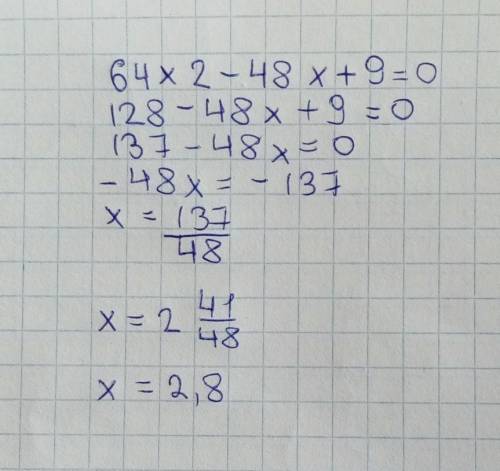 64x2-48x+9=0
128-48x+9=0
137-48x=0
-48x=-137
x=137/48
x=2 41/48
x=2,8